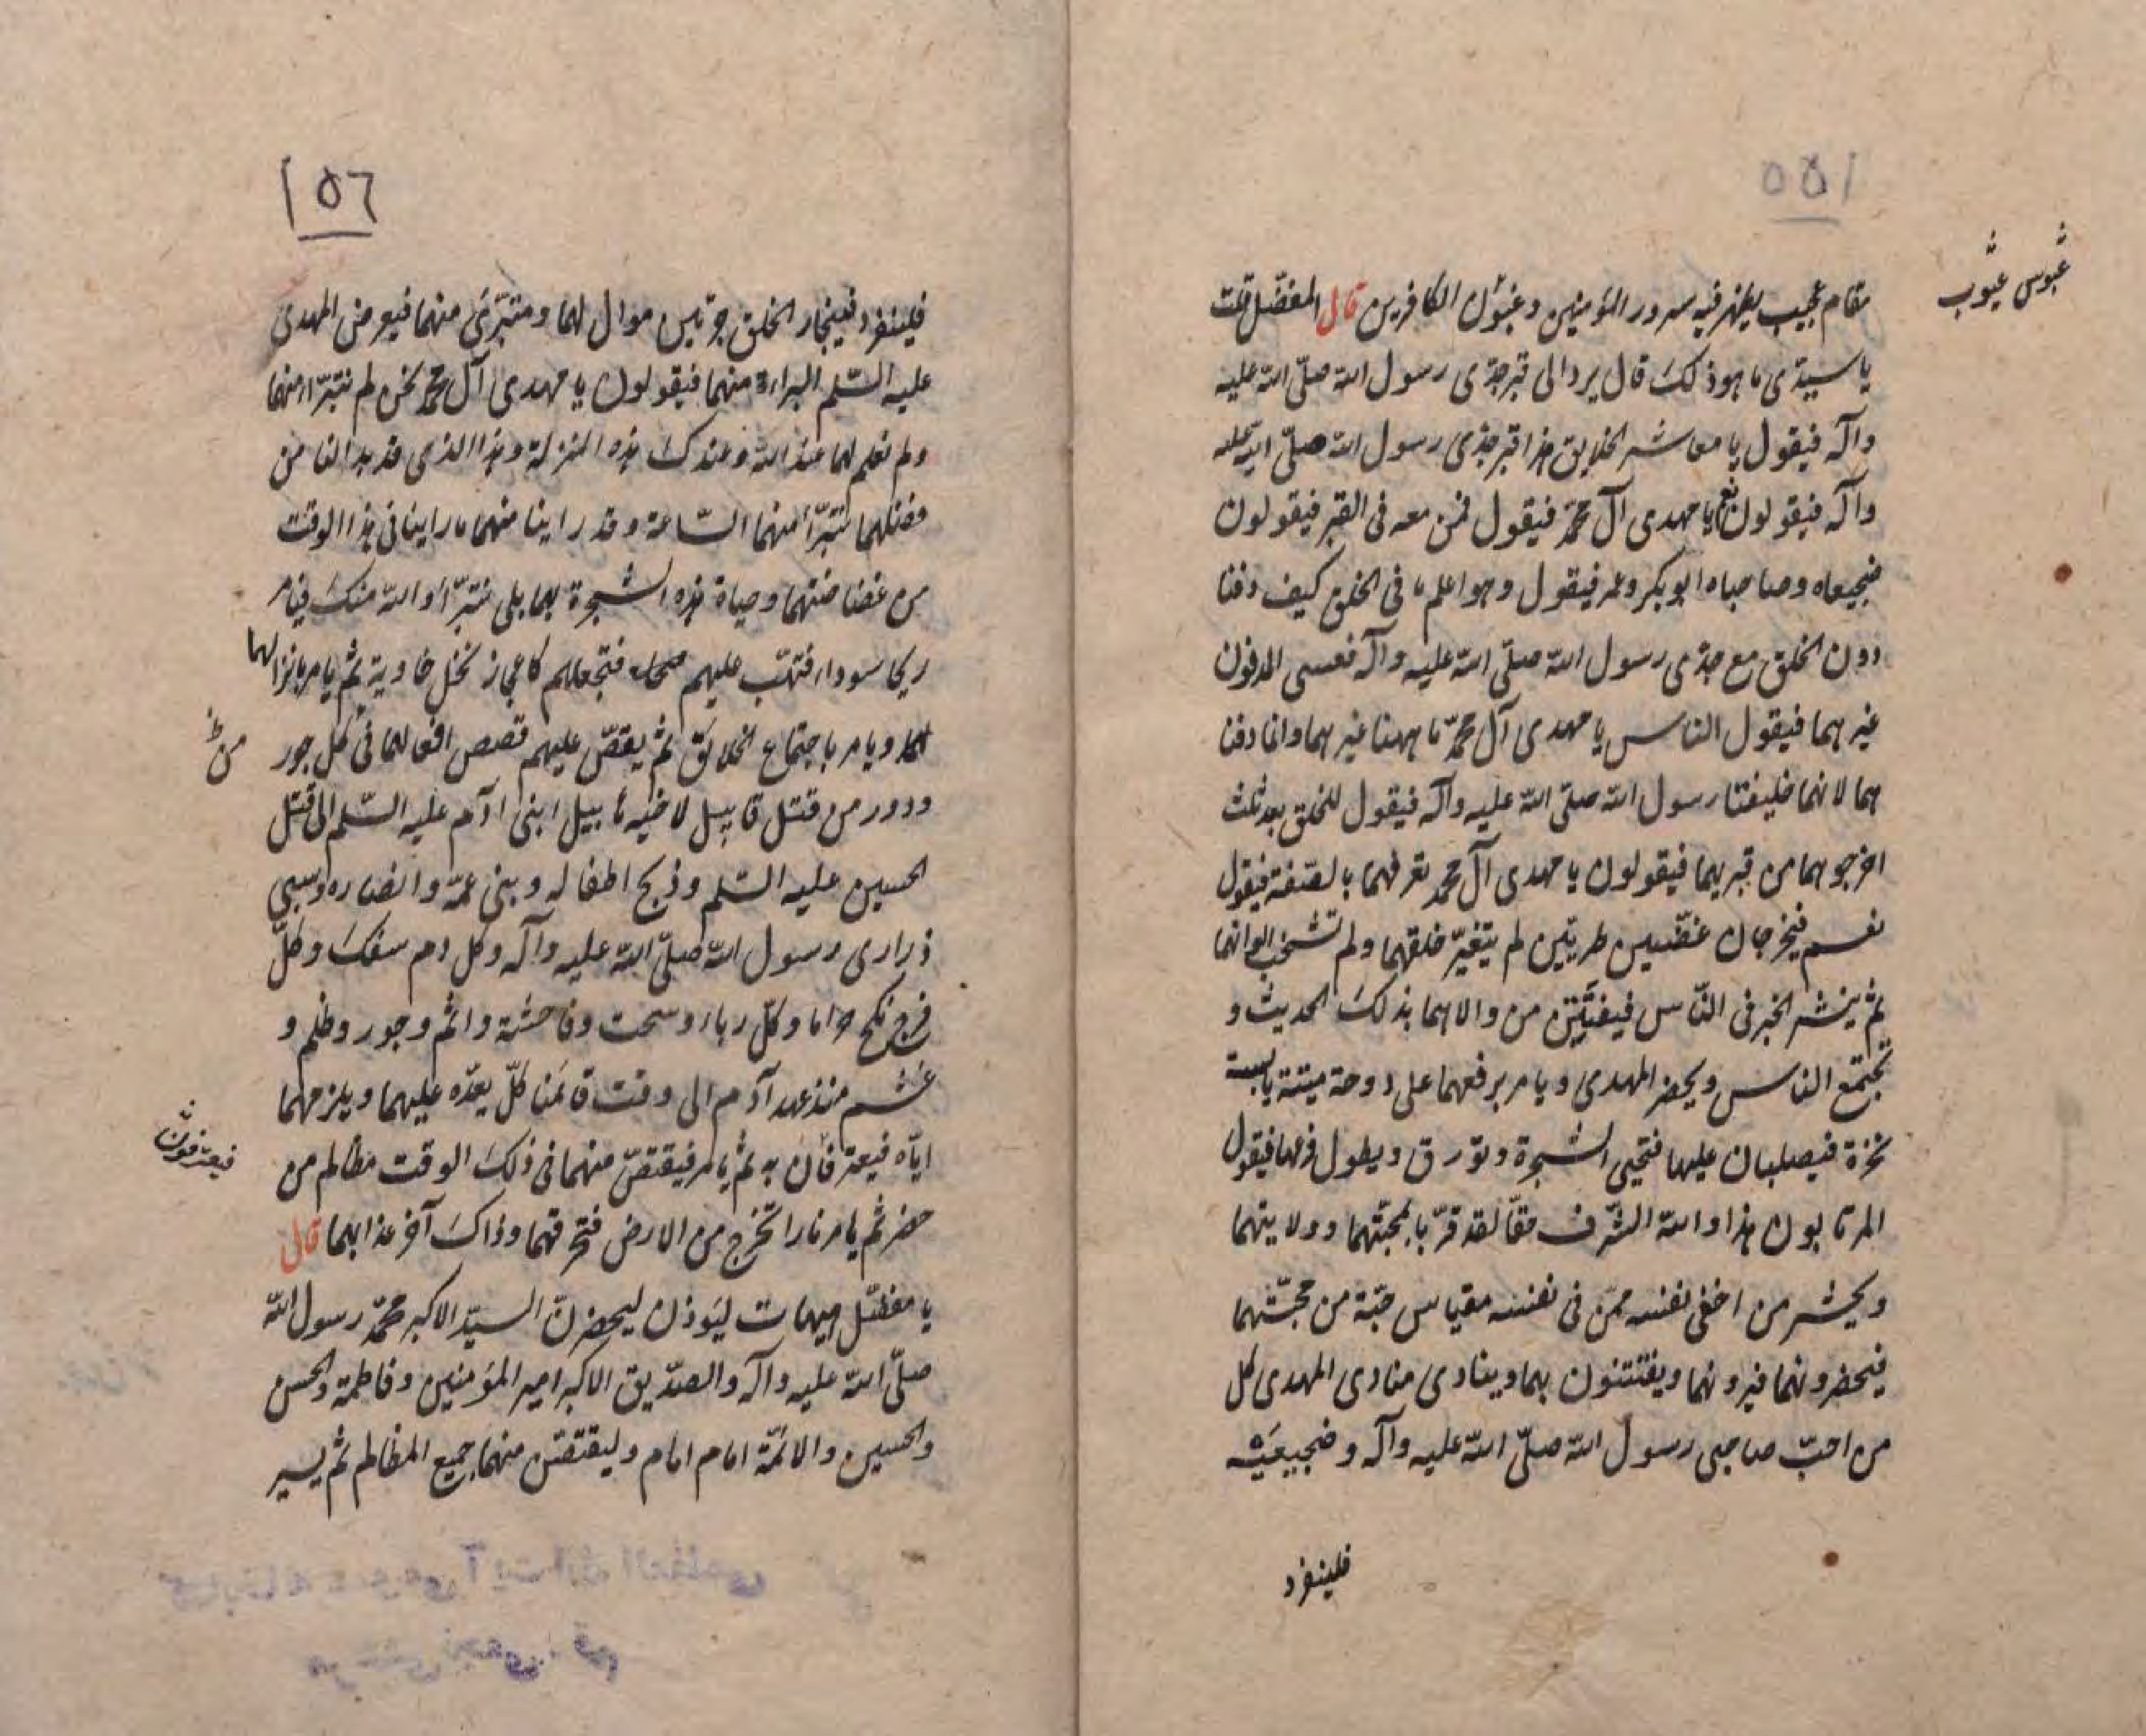 ١٥٥
مقام عجيب يظهر فيه سرور المؤمنين و قال المفضّل قلت
عبوس عيوب
يا سيدى ما هو ذلك قال يرد الى قبر جدّى رسول الله صلّى الله عليه
وآله فيقول يا معاشر الخلايق هذا قبر جدّى رسول الله صلّى الله عليه
وآله فيقولون نعم يا مهدى آل محمّد فيقول فمن معه فى القبر فيقولون
ضجيعاه وصاحباه ابو بكر وعمر فيقول وهو اعلم ما فى الخلق كيف دفنا
دون الخلق مع جدّى رسول الله صلّى الله عليه وآله فعسى المدفون
غيرهما فيقول الناس يا مهدى آل محمّد ما ههنا غيرهما وانما دفنا
هما لانهما خليفتا رسول الله صلّى الله عليه وآله فيقول للخلق بعد ثلث
اخرجوهما من قبريهما فيقولون يا مهدى آل محمد تعرفهما بالصّفة فيقول
نعم فيخرجان غضّين طريّين لم يتغيّر خلقهما ولم تشخب الوانهما
ثم ينشر الخبر فى النّاس فيفتتن من والاهما بذلك الحديث و
تجتمع الناس ويحضر المهدى ويامر برفعهما على دوحة ميتة يابسة
نخرة فيصلبان عليها فتحيى الشجرة وتورق ويطول فرعها فيقول
المرتابون هذا والله الشّرف حقّا لقد فزنا بمحبّتهما وولايتهما
ويحشر من اخفى نفسه ممّن فى نفسه مقياس حبّة من محبّتهما
فيحضرونهما فيرونهما ويفتتنون بهما وينادى منادى المهدى كل
من احبّ صاحبى رسول الله صلّى الله عليه وآله وضجيعيه
فلينفرد
١٥٦
فلينفرد فينحاز الخلق جزئين موال لهما ومتبرّئ منهما فيعرض المهدى
عليه السّلم البراءة منهما فيقولون يا مهدى آل محمّد نحن لم نتبرّأ منهما
ولم نعلم لهما عند الله وعندك هذه المنزلة وهذا الذى قد بدا لنا من
فضلهما نتبرّأ منهما السّاعة وقد راينا منهما ما راينا فى هذا الوقت
من غضاضتهما وحياة هذه الشجرة بهما بلى نتبرّأ والله منك فيامر
ريحا سوداء فتهبّ عليهم فتجعلهم كاعجاز نخل خاوية ثم يامر بانزالهما
ويامر باجتماع الخلائق ثم يقصّ عليهم قصص افعالهما فى كل جور
ودور من قتل قابيل لاخيه هابيل ابنى آدم عليه السّلم الى قتل
الحسين عليه السّلم وذبح اطفاله وبنى عمّه وانصاره وسبى
ذرارى رسول الله صلّى الله عليه وآله وكل دم سفك وكلّ
فرج نكح حراما وكلّ رباء وسحت وفاحشة واثم وجور وظلم و
غشم منذ عهد آدم الى وقت قائمنا كلّ يعدّه عليهما ويلزمهما
ايّاه فيعترفان به ثم يامر فيقتصّ منهما فى ذلك الوقت مظالم من
فيعترفون
حضر ثم يامر نارا تخرج من الارض فتحرقهما وذاك آخر عذابهما قال
يا مفضّل هيهات ليوذن ليحضرنّ السيّد الاكبر محمّد رسول الله
صلّى الله عليه وآله والصدّيق الاكبر امير المؤمنين وفاطمة والحسن
والحسين والائمّة امام امام وليقتصّن منهما جميع المظالم ثم يسير